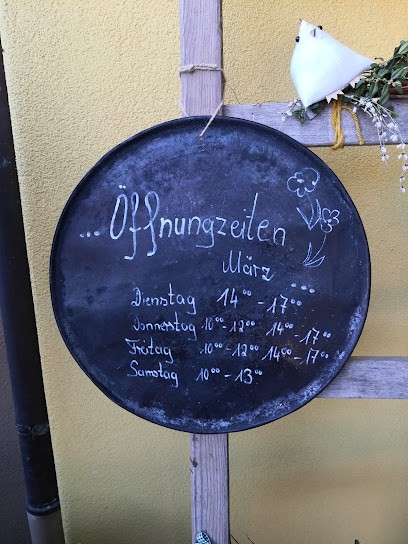 ... Öffnungzeiten
März ...
Dienstag 14⁰⁰ - 17⁰⁰
Donnerstag 10⁰⁰ - 12⁰⁰ 14⁰⁰ - 17⁰⁰
Freitag 10⁰⁰ - 12⁰⁰ 14⁰⁰ - 17⁰⁰
Samstag 10⁰⁰ - 13⁰⁰